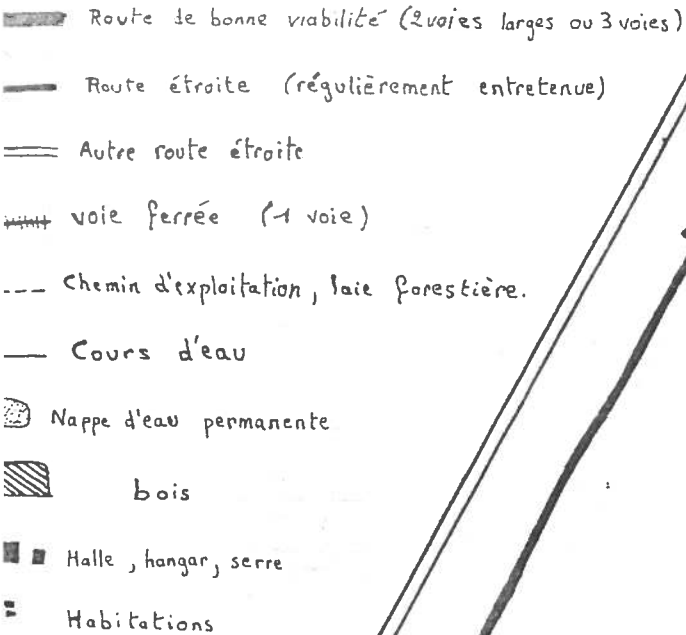 Route de bonne viabilité (2 voies larges ou 3 voies)
Route étroite (régulièrement entretenue)
Autre route étroite
voie ferrée (1 voie)
Chemin d'exploitation, laie forestière.
Cours d'eau
Nappe d'eau permanente
bois
Halle, hangar, serre
Habitations